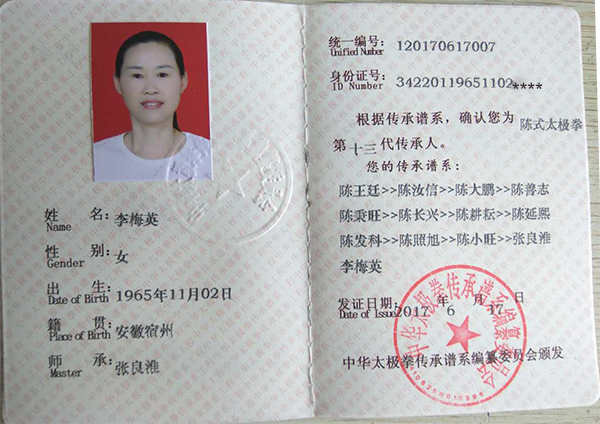 姓 名： 李梅英
Name
性 别： 女
Gender
出 生： 1965年11月02日
Date of Birth
籍 贯： 安徽宿州
Place of Birth
师 承： 张良淮
Master
统一编号： 120170617007
Unified Number
身份证号： 34220119651102****
ID Number
根据传承谱系，确认您为 陈式太极拳
第 十三 代传承人。
您的传承谱系：
陈王廷>>陈汝信>>陈大鹏>>陈善志
陈秉旺>>陈长兴>>陈耕耘>>陈延熙
陈发科>>陈照旭>>陈小旺>>张良淮
李梅英
发证日期： 2017 年 6 月 17 日
Date of Issue
中华太极拳传承谱系编纂委员会颁发
中华太极拳传承谱系编纂委员会